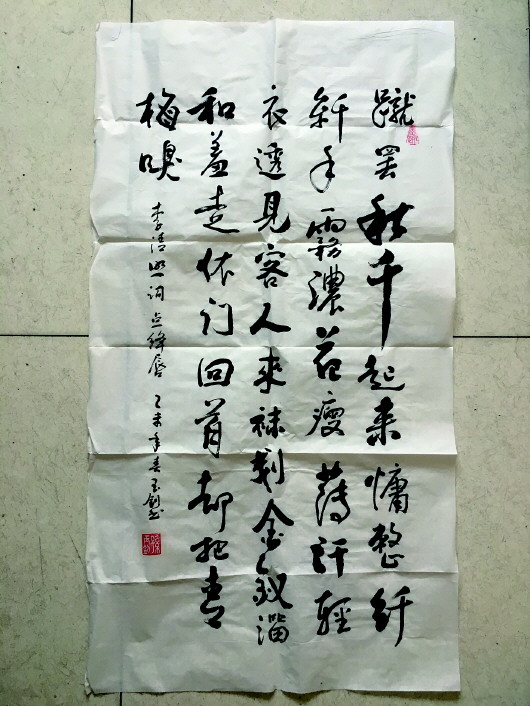 蹴罢秋千起来慵整纤
纤手霧濃花瘦薄汗輕
衣透見客人來袜剗金釵溜
和羞走依门回首却把青
梅嗅
李清照词点绛唇 乙未年春玉